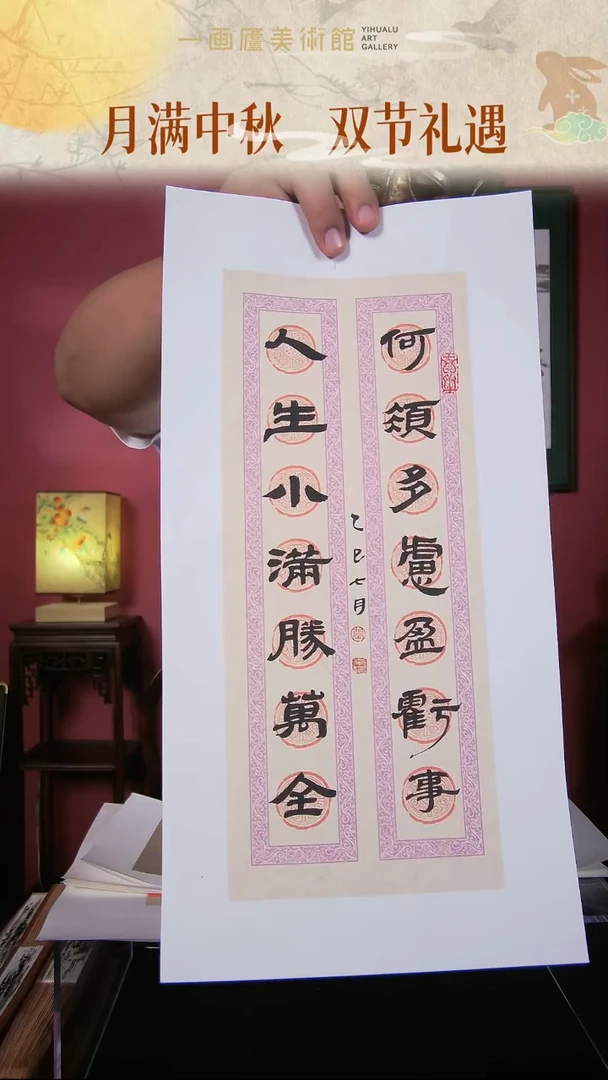 一画廬美術館
YIHUALU
ART
GALLERY
月满中秋 双节礼遇
何須多慮盈虧事
人生小滿勝萬全
乙巳七月